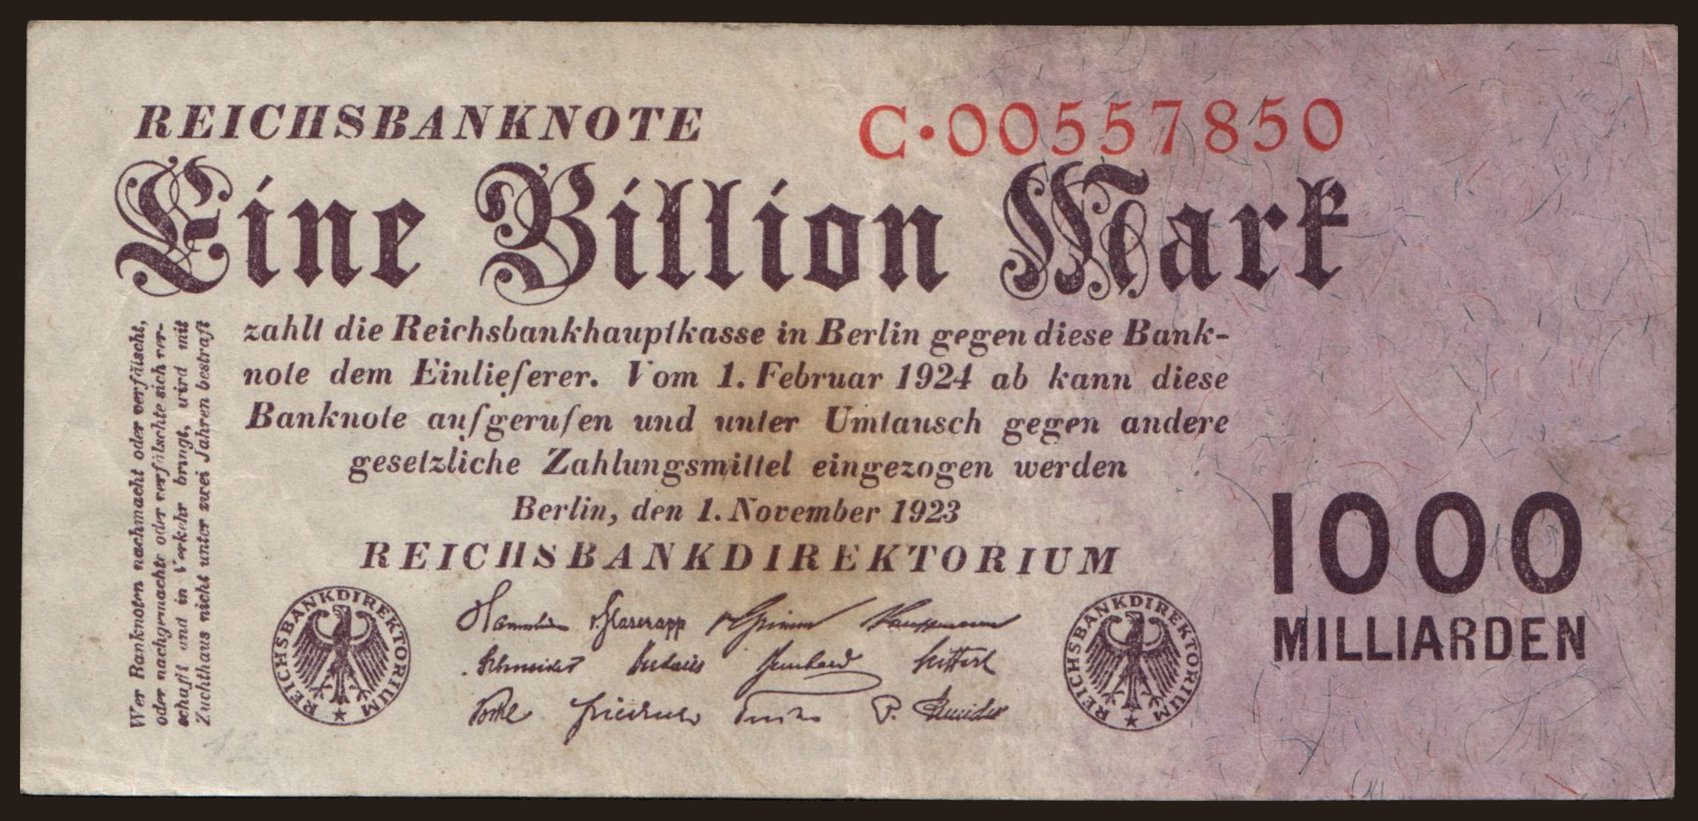 REICHSBANKNOTE
C·00557850
Eine Billion Mark
zahlt die Reichsbankhauptkasse in Berlin gegen diese Bank-
note dem Einlieferer. Vom 1. Februar 1924 ab kann diese
Banknote aufgerufen und unter Umtausch gegen andere
gesetzliche Zahlungsmittel eingezogen werden
Berlin, den 1. November 1923
REICHSBANKDIREKTORIUM
v. Glasenapp v. Grimm Kauffmann
Schneider Budczies Bernhard Seiffert
Vocke Friedrich Fuchs P. Schneider
REICHSBANKDIREKTORIUM
REICHSBANKDIREKTORIUM
1000
MILLIARDEN
Wer Banknoten nachmacht oder verfälscht,
oder nachgemachte oder verfälschte sich ver-
schafft und in Verkehr bringt, wird mit
Zuchthaus nicht unter zwei Jahren bestraft